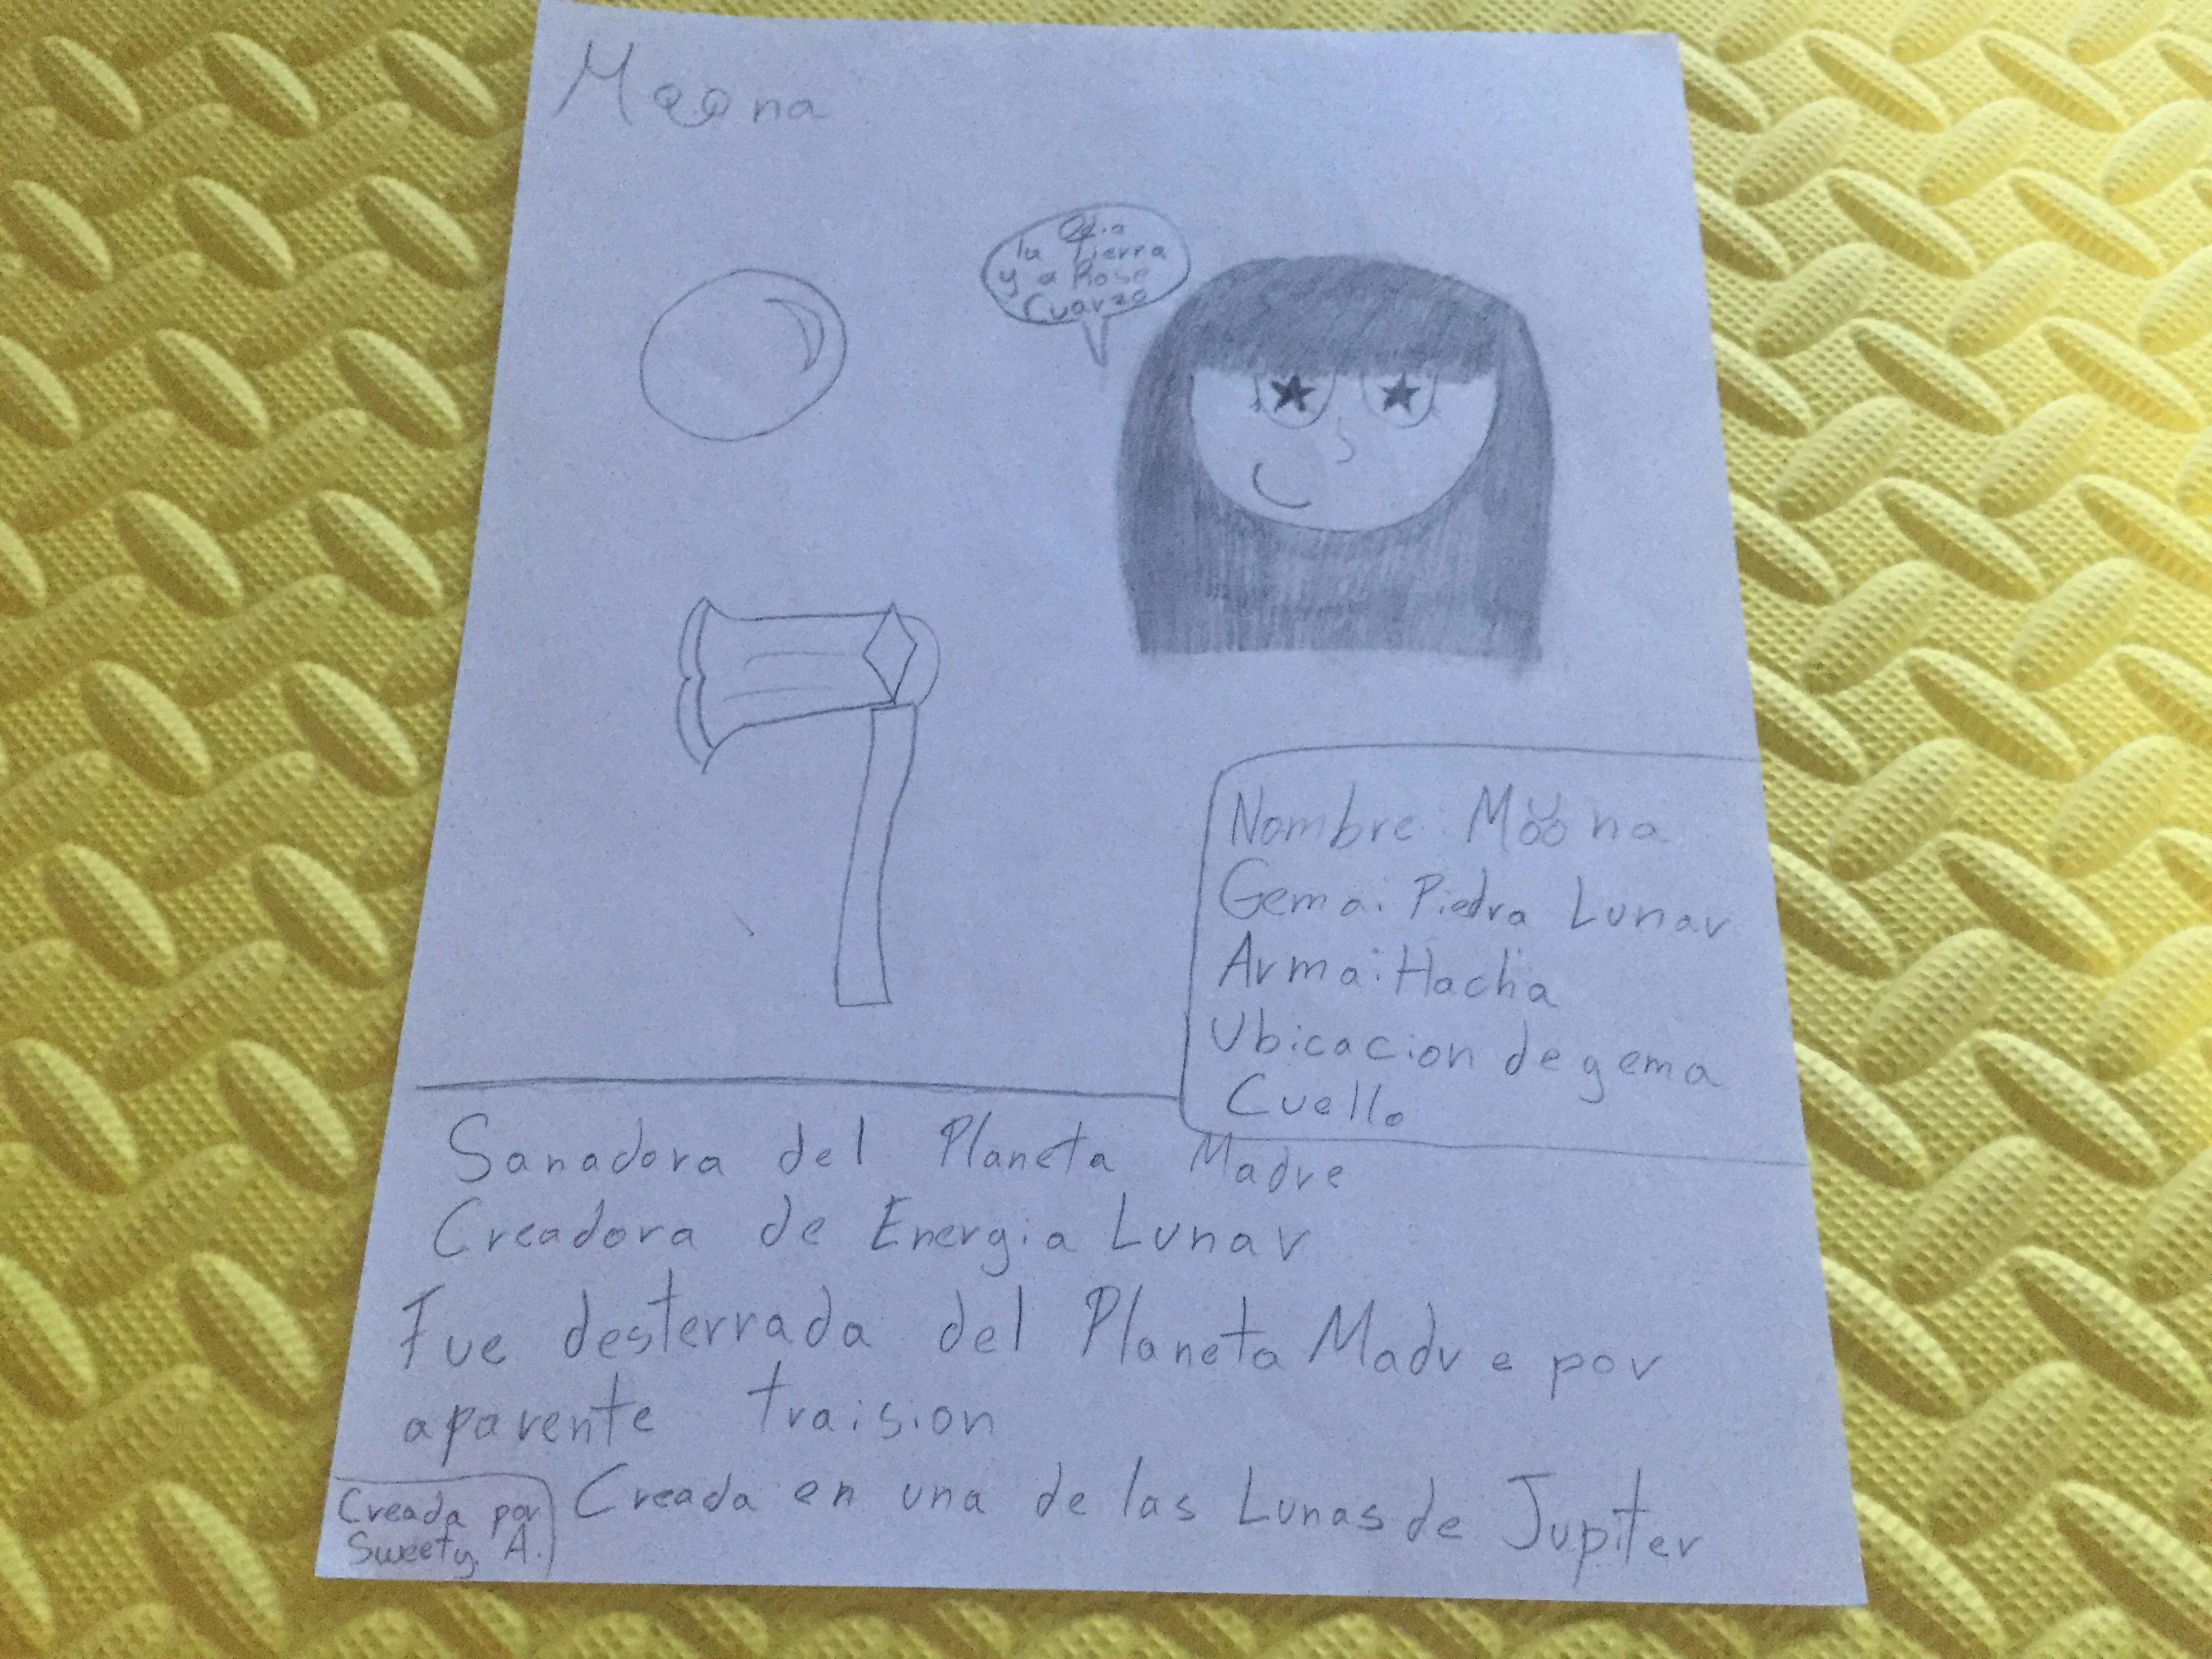 Moona
Odio
la Tierra
y a Rose
Cuarzo
Nombre: Moona
Gema: Piedra Lunar
Arma: Hacha
Ubicacion de gema
Cuello
Sanadora del Planeta Madre
Creadora de Energia Lunar
Fue desterrada del Planeta Madre por
aparente traision
Creada en una de las Lunas de Jupiter
Creada por
Sweety. A.